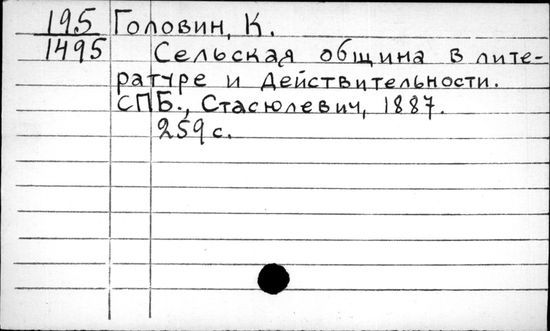 195 Головин, К.
1495 Сельская община в лите-
ратуре и действительности.
СПБ., Стасюлевич, 1887.
259 с.